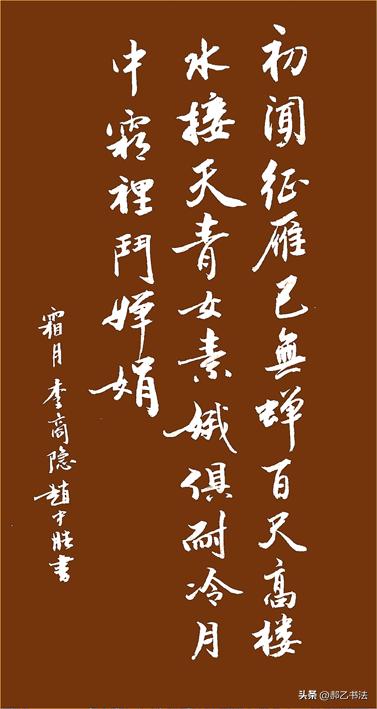 初闻征雁已無蝉百尺高楼
水接天青女素娥俱耐冷月
中霜裡鬥婵娟
霜月李商隐趙中胜書
头条 @郝乙书法